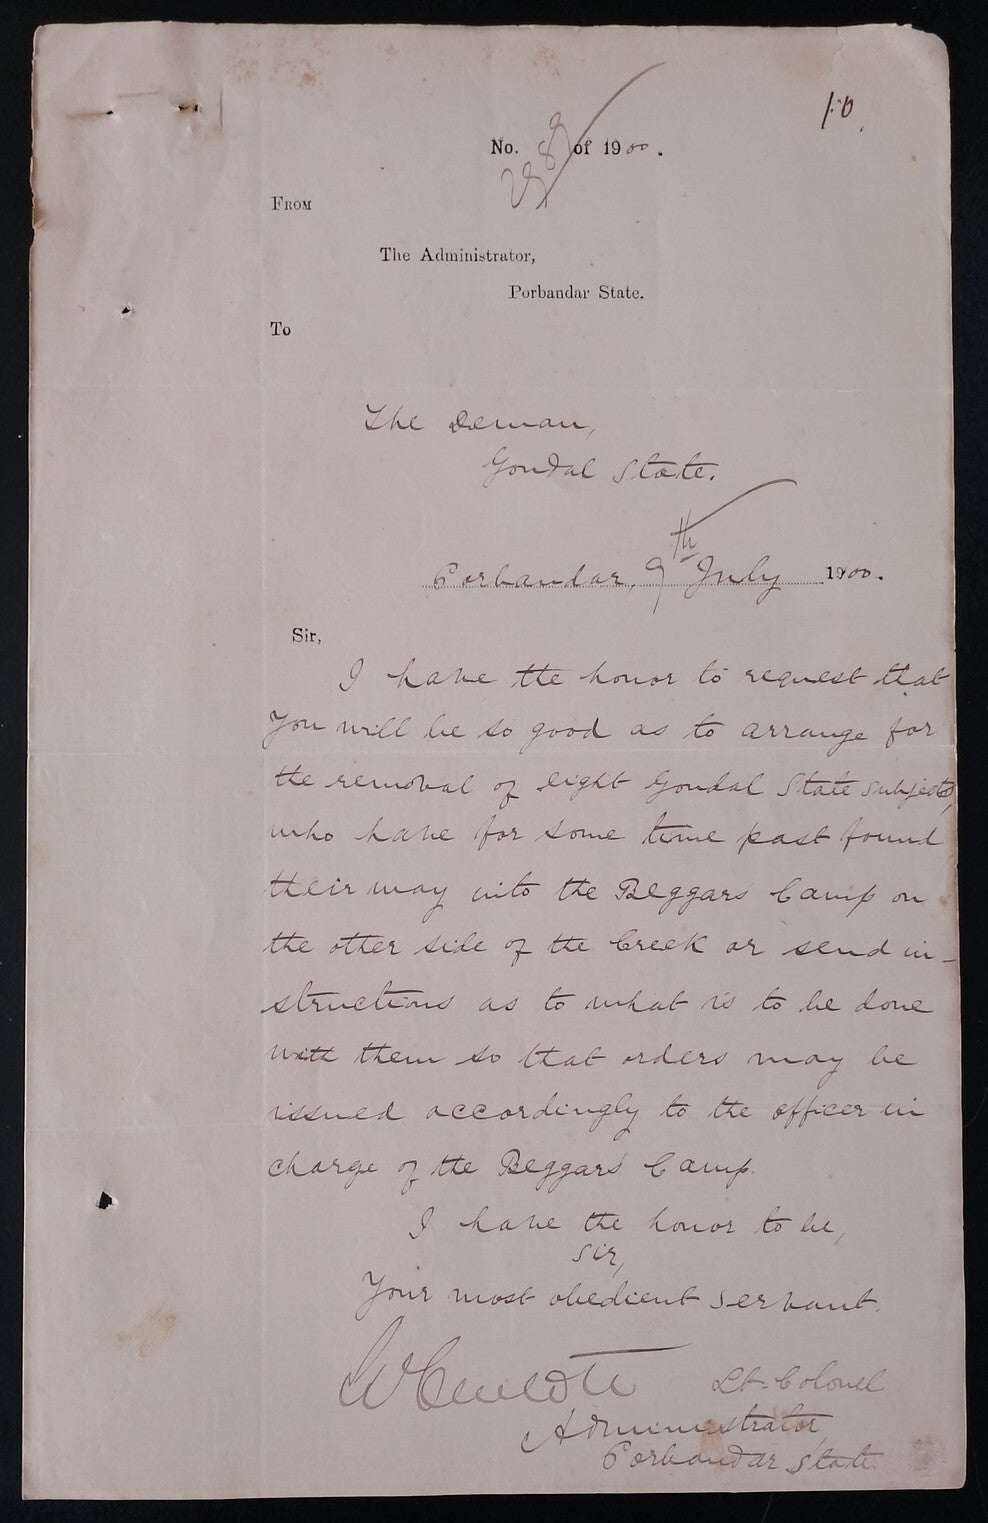 10
No. of 1900.
From
The Administrator,
Porbandar State.
To
The Dewan,
Gondal State.
Porbandar, 9th July 1900.
Sir,
I have the honor to request that
you will be so good as to arrange for
the removal of eight Gondal State subjects,
who have for some time past found
their way into the Beggars Camp on
the other side of the Creek or send in-
structions as to what is to be done
with them so that orders may be
issued accordingly to the officer in
charge of the Beggars' Camp.
I have the honor to be,
Sir,
Your most obedient servant.
Lt-Colonel
Administrator,
Porbandar State.